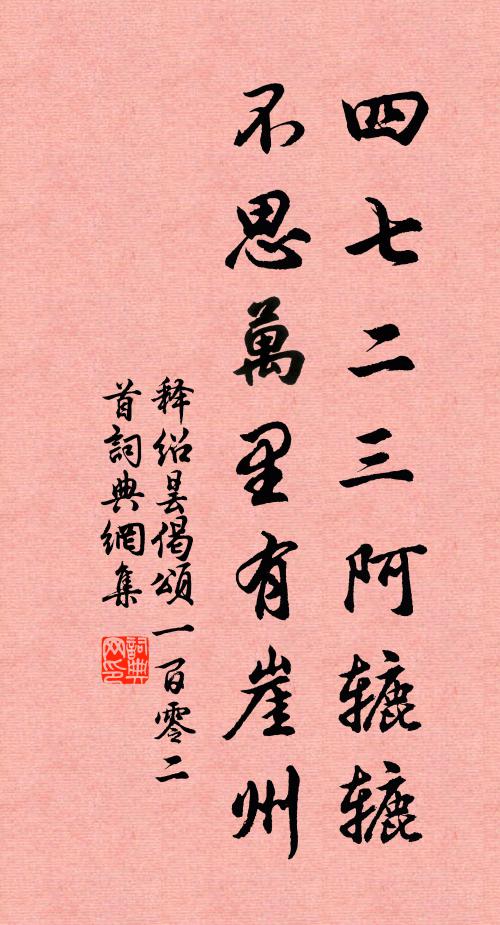 四七二三阿辘辘
不思萬里有崖州
释绍昙偈頌一百零二
首詞典網集
詞典
网印